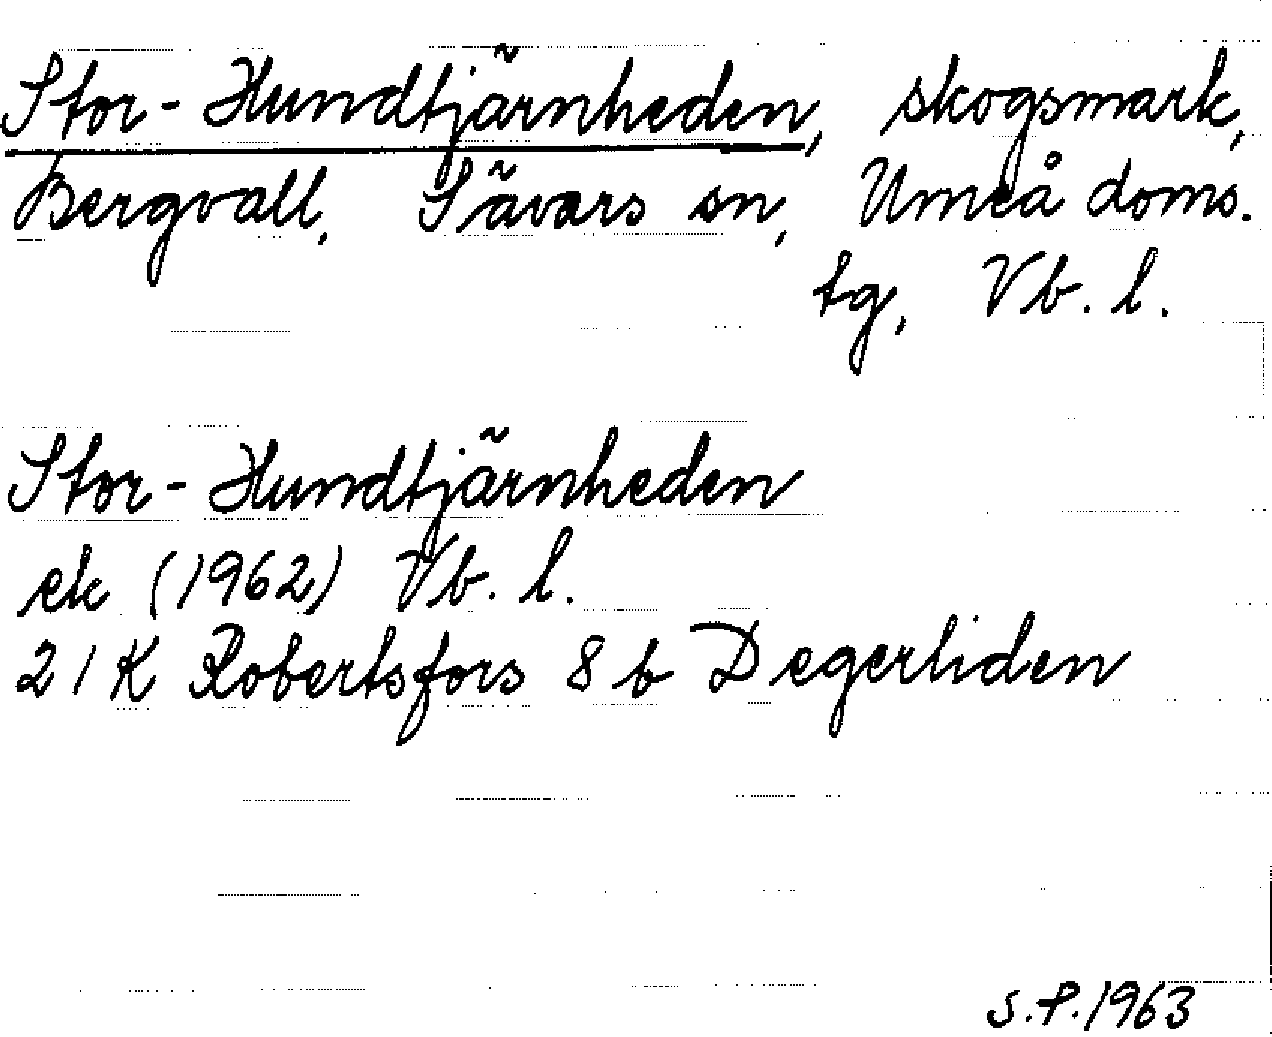 Stor-Hundtjärnheden, skogsmark,
Bergvall, Sävars sn, Umeå doms.
tg, Vb. l.
Stor-Hundtjärnheden
ek (1962) Vb. l.
21K Robertsfors 8b Degerliden
S.P. 1963